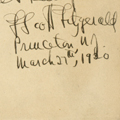 F Scott Fitzgerald
Princeton, N.J.
March 27th, 1920